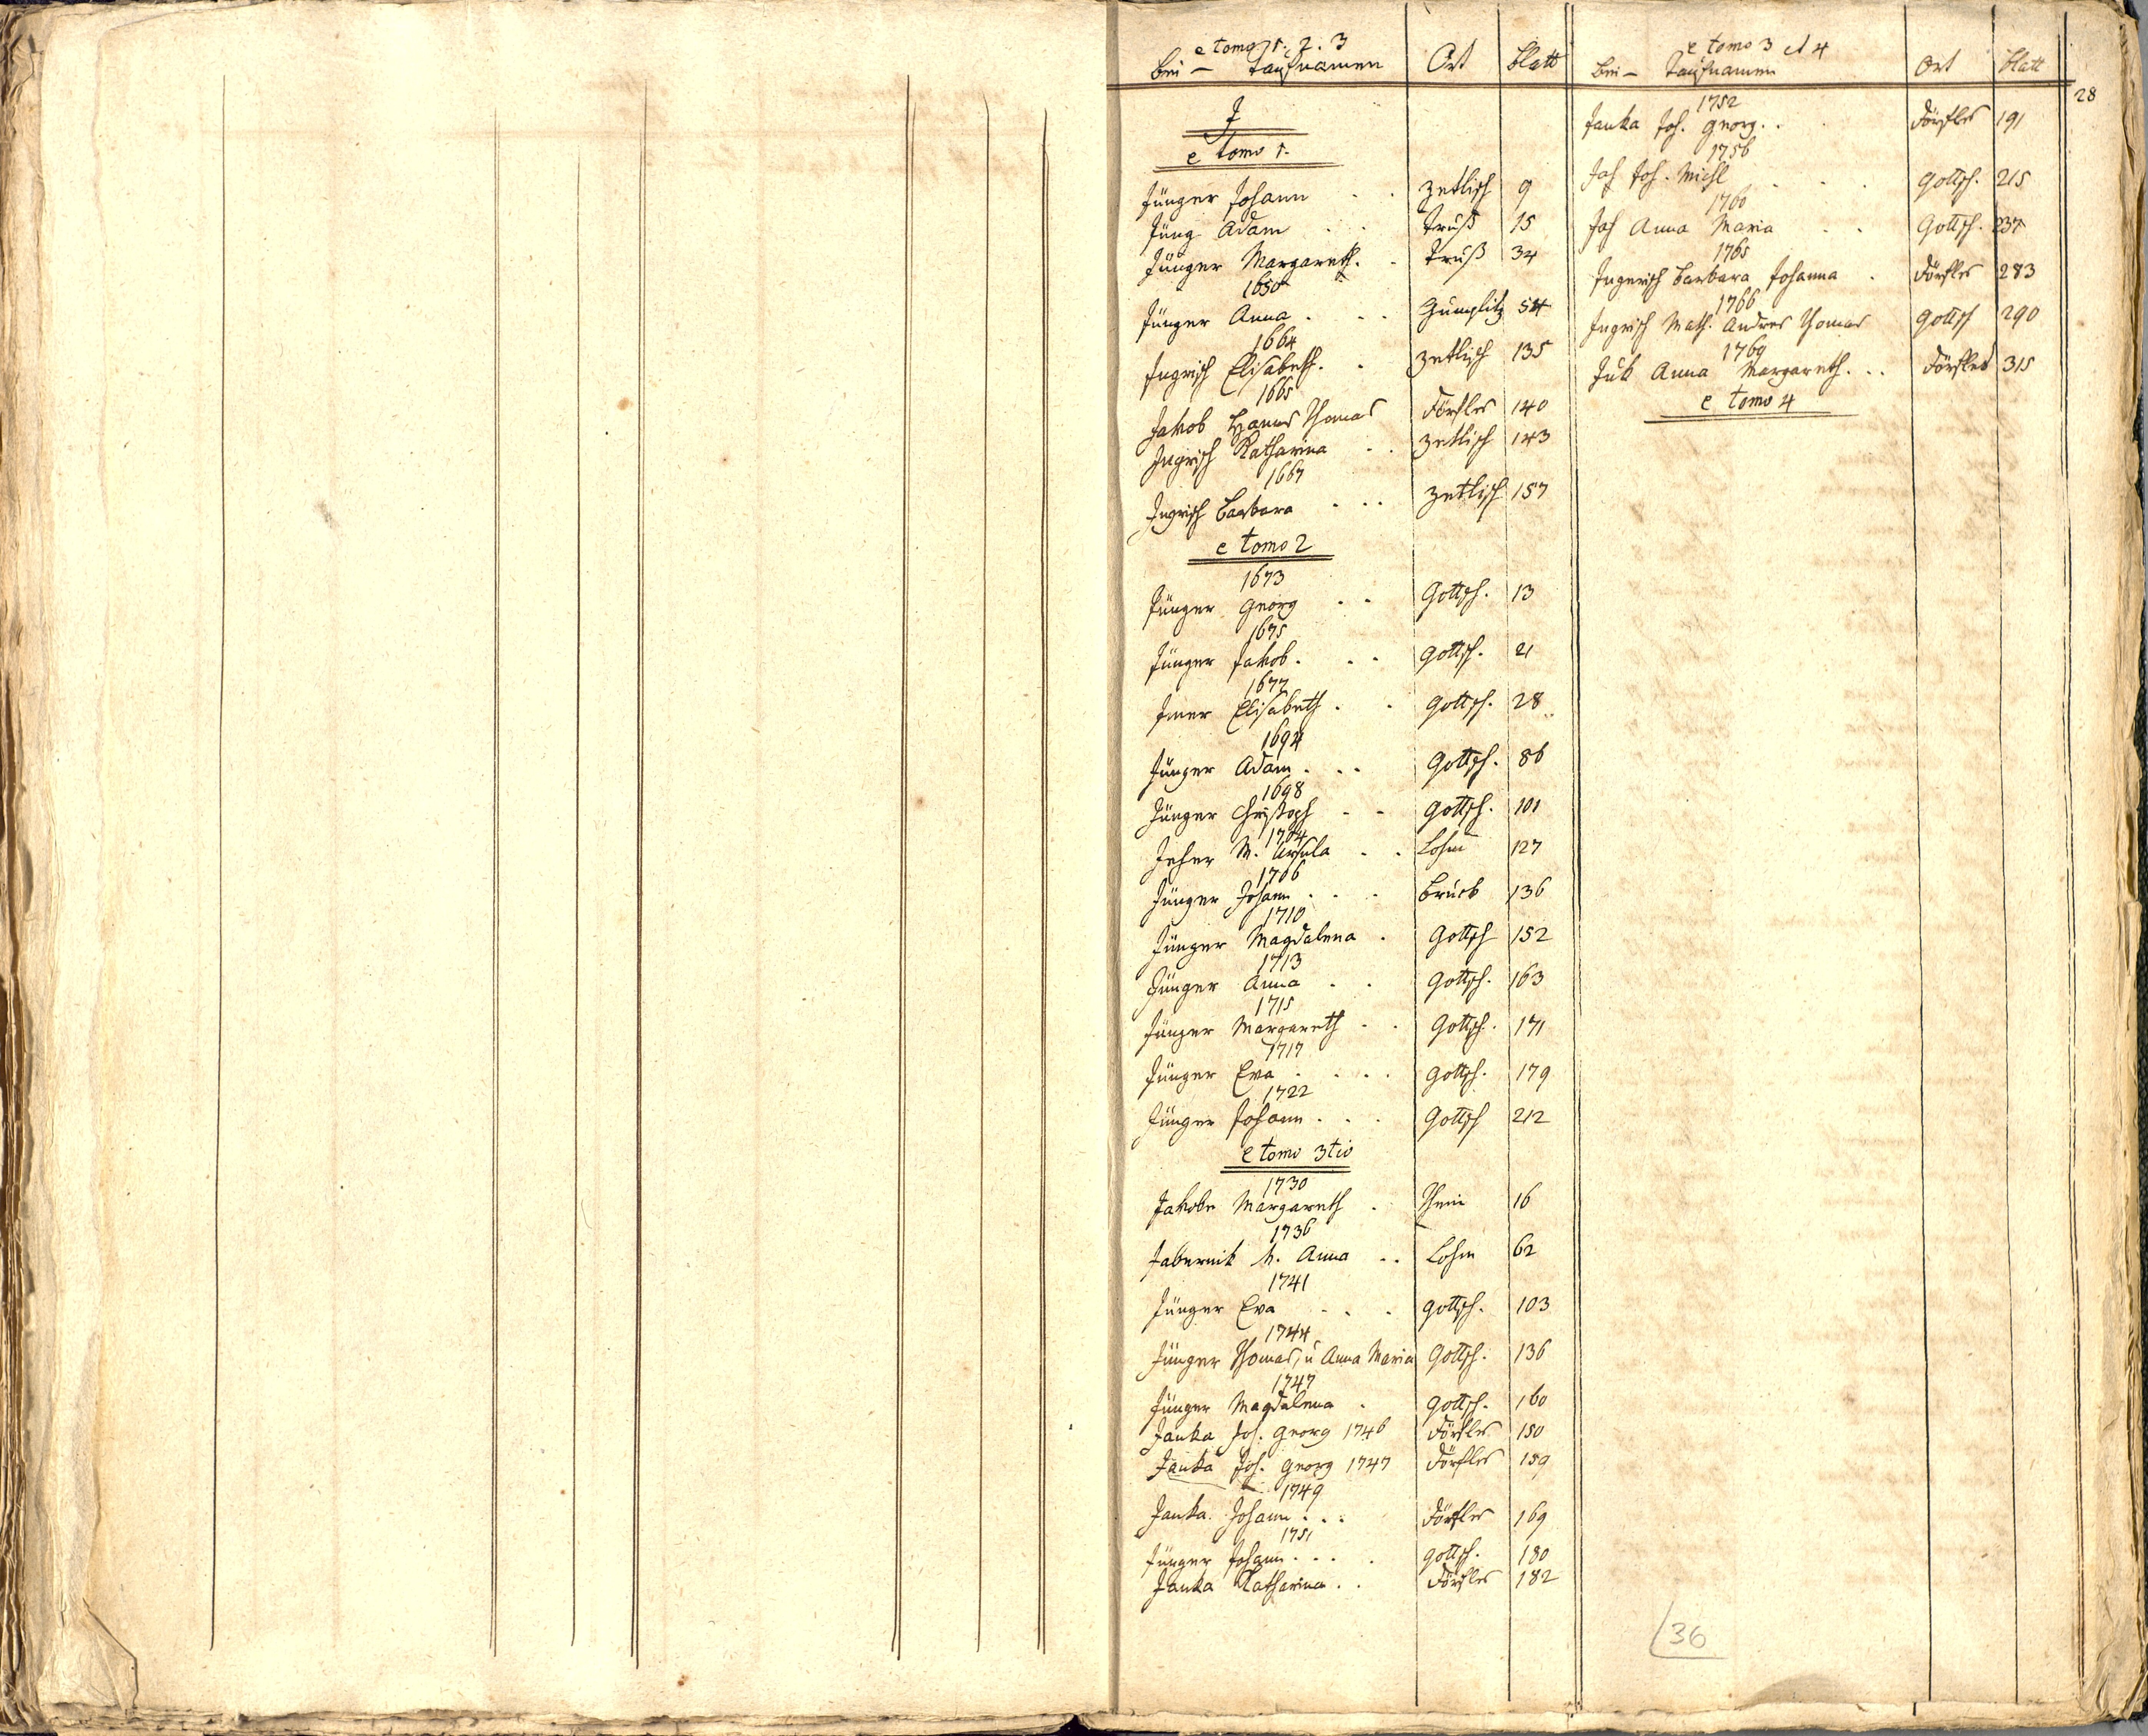 e tomo 1. 2. 3
bei – Taufnamen Ort blatt
J
e tomo 1.
Jünger Johann . . Zetlisch 9
Jüng Adam . . Truß 15
Jünger Margareth. . Truß 34
1650
Jünger Anna . . . Gümplitz 54
1664
Ingrisch Elisabeth. . Zetlisch 135
1665
Jakob Hanns Thomas Dörfles 140
Ingrisch Katharina . . Zetlisch 143
1667
Ingrisch Barbara . . . Zetlisch 157
e tomo 2
1673
Jünger Georg . . Gottsch. 13
1675
Jünger Jakob. . . Gottsch. 21
1677
Elisabeth . . Gottsch. 28
1694
Jünger Adam . . . Gottsch. 86
1698
Jünger Christoph . . Gottsch. 101
1704
Jeher M. Ursula . . Lohm 127
1706
Jünger Johann . . . Bruck 136
1710
Jünger Magdalena . Gottsch 152
1713
Jünger Anna . . Gottsch. 163
1715
Jünger Margareth . . Gottsch. 171
1717
Jünger Eva . . . . Gottsch. 179
1722
Jünger Johann . . . Gottsch 212
e tomo 3tio
1730
Jakobe Margareth . Thein 16
1736
Jabernik M. Anna . . Lohm 62
1741
Jünger Eva . . . Gottsch. 103
1744
Jünger Thomas, u Anna Maria Gottsch. 136
1747
Jünger Magdalena . Gottsch. 160
Janka Joh. Georg 1746 Dörfles 150
Janka Joh. Georg 1747 Dörfles 159
1749
Janka Johann . . . Dörfles 169
1751
Jünger Johann . . . . Gottsch. 180
Janka Katharina . . Dörfles 182
e tomo 3 et 4
bei – Taufnamen Ort blatt
28
1752
Janka Joh. Georg. . Dörfles 191
1756
Jah Joh. Michl . . . Gottsch. 215
1760
Jah Anna Maria . . Gottsch. 237
1765
Ingerisch Barbara Johanna . Dörfles 283
1766
Ingrisch Math. Andres Thomas Gottsch 290
1769
Anna Margareth. . . Dörfles 315
e tomo 4
36